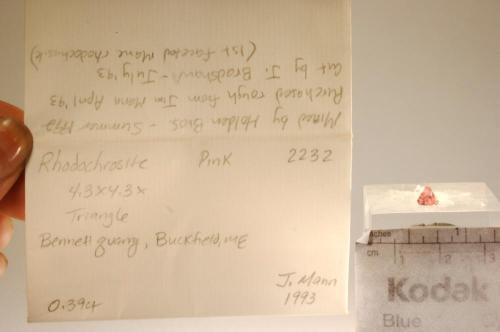 Mined by Holden Bros. - Summer 1992
Purchased rough from Jim Mann April '93
Cut by J. Bradshaw - July '93
(1st faceted Maine rhodochrosite)
Rhodochrosite Pink 2232
4.3x4.3x
Triangle
Bennett Quarry, Buckfield, ME
J. Mann
1993
0.39ct
inches 1
cm 1 2 3
Kodak
Blue